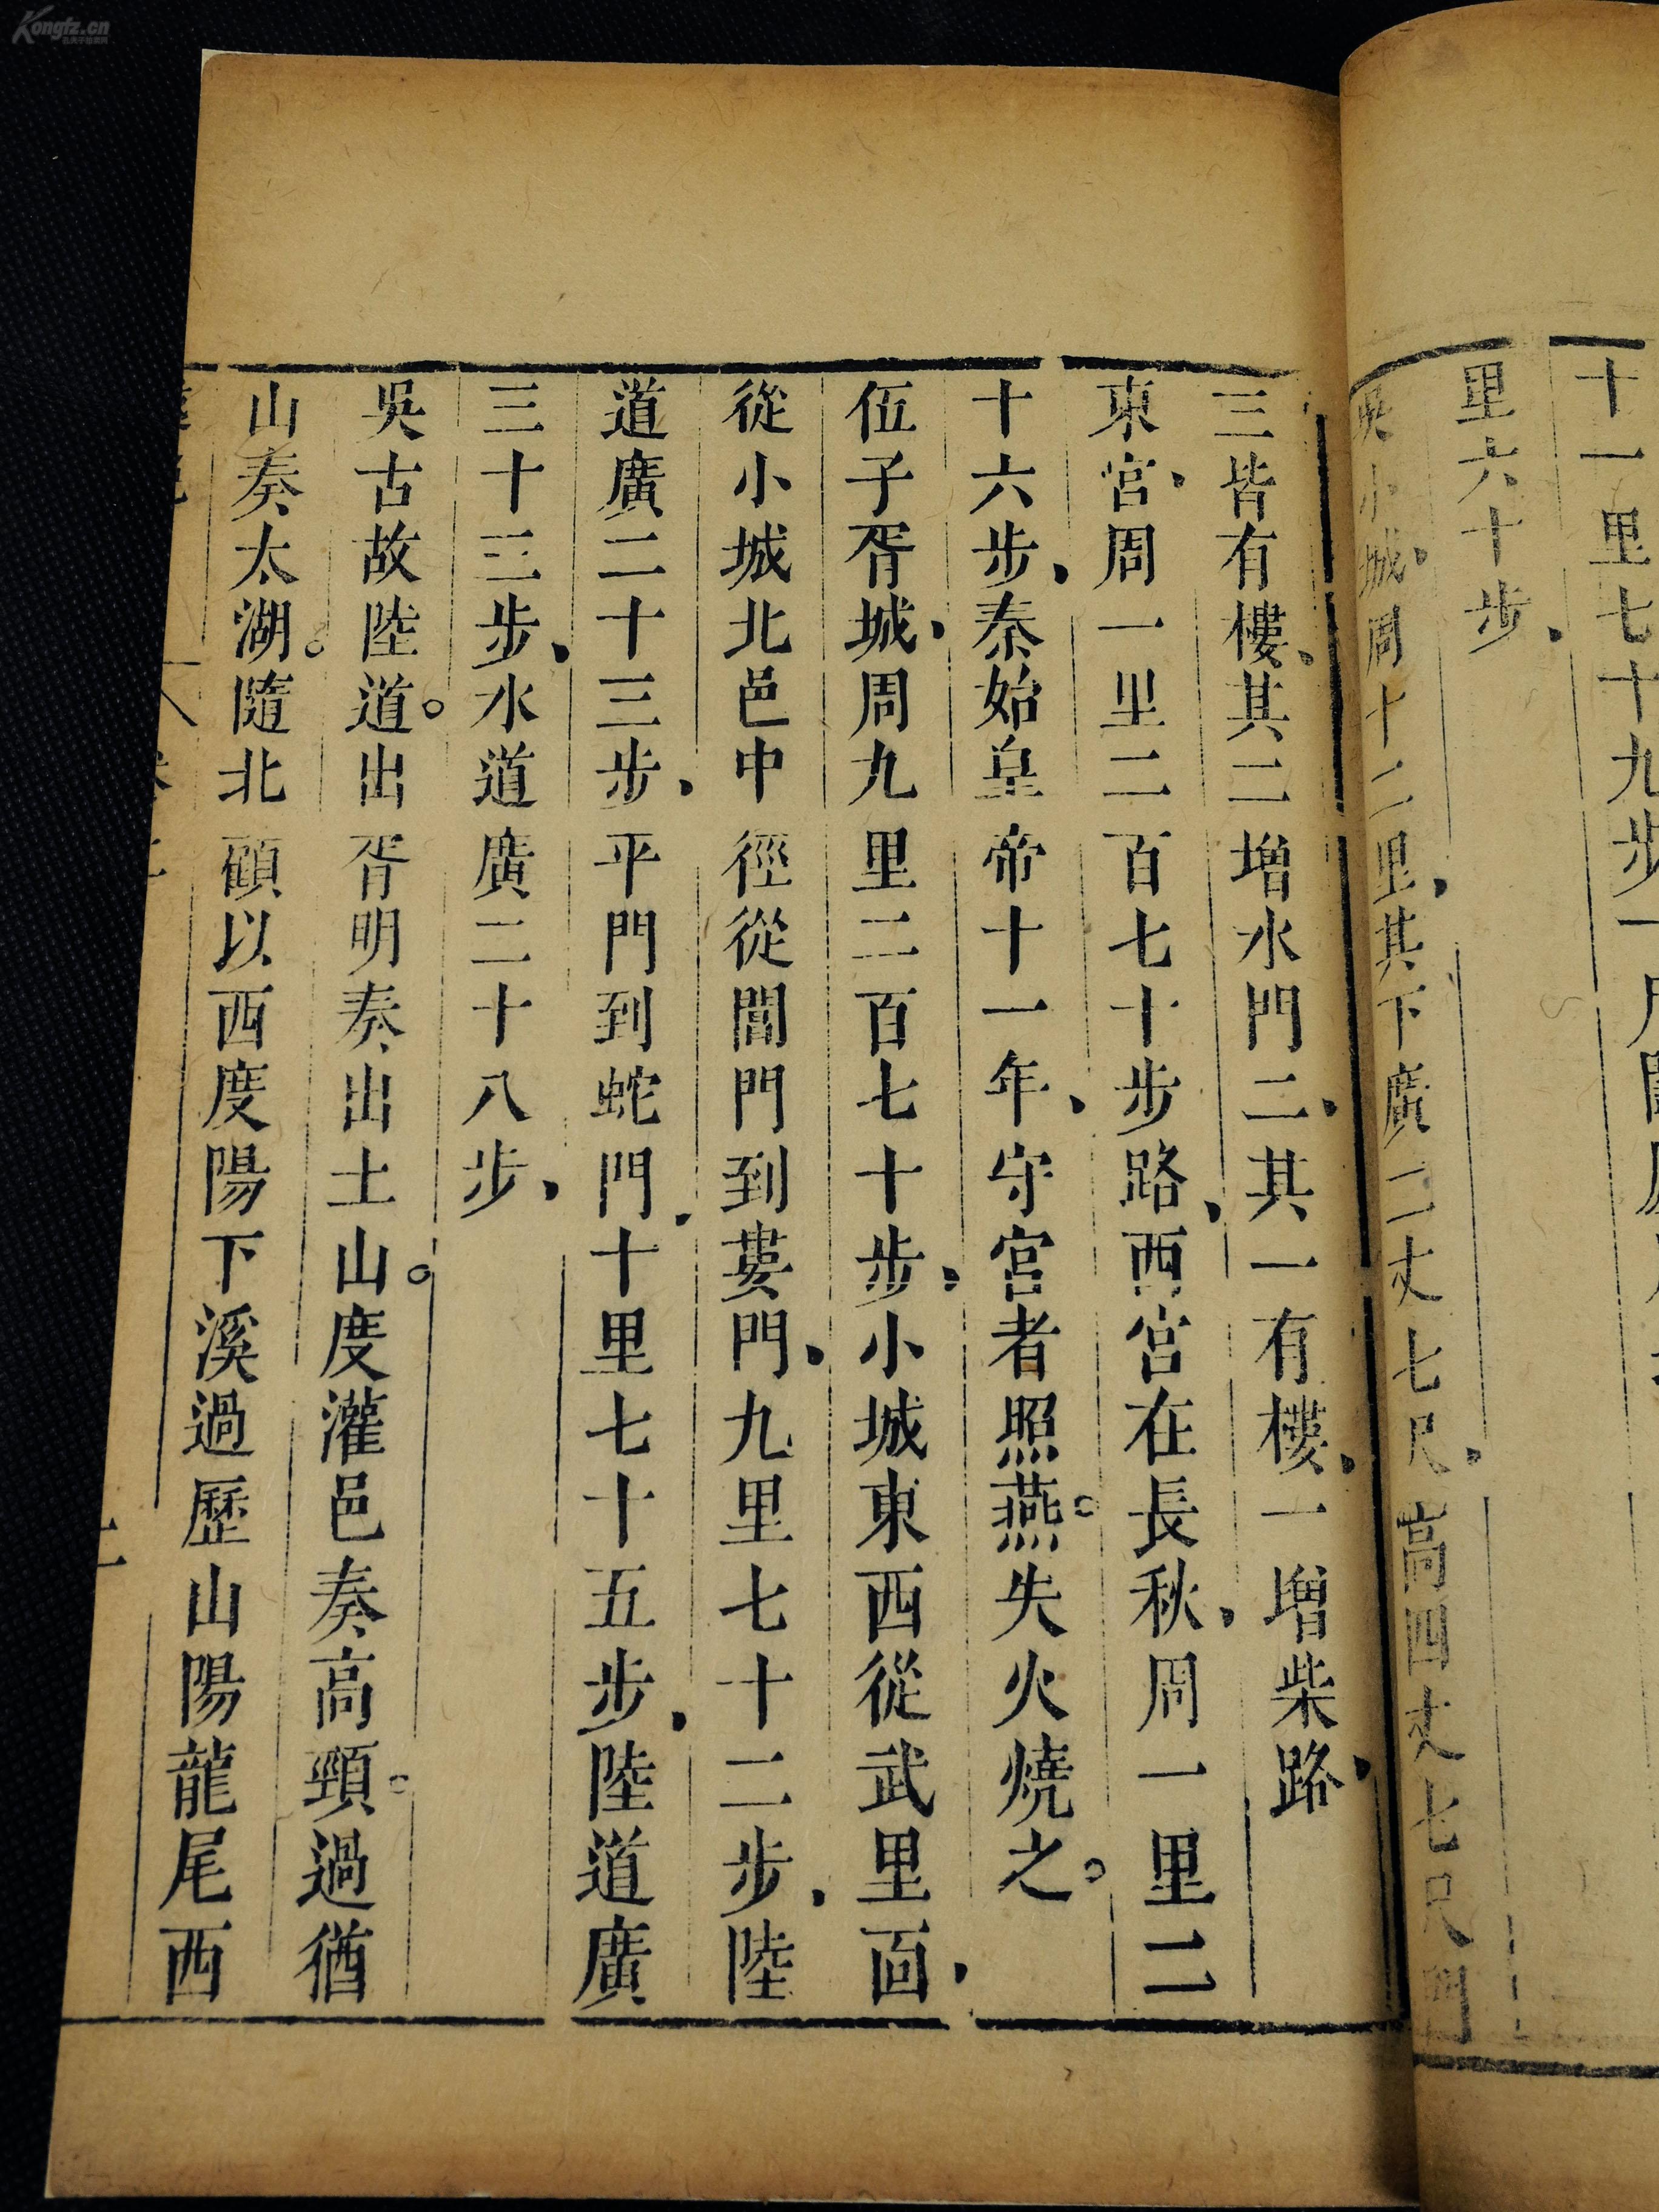 十一里七十九步一尺闔廬
里六十步、
吳小城、周十二里、其下廣二丈七尺、高四丈七尺門
三皆有樓、其二增水門二、其一有樓、一增柴路、
東宮、周一里二百七十步路、西宮在長秋、周一里二
十六步、秦始皇帝十一年、守宮者照燕。失火燒之。
伍子胥城、周九里二百七十步、小城東西從武里面、
從小城北邑中徑從閶門到婁門、九里七十二步、陸
道廣二十三步、平門到蛇門、十里七十五步、陸道廣
三十三步、水道廣二十八步、
吳古故陸道。道出胥明奏出土山。山度灌邑奏高頸。過猶
山奏太湖。隨北顧以西度陽下溪過歷山陽龍尾西
Kongfz.cn